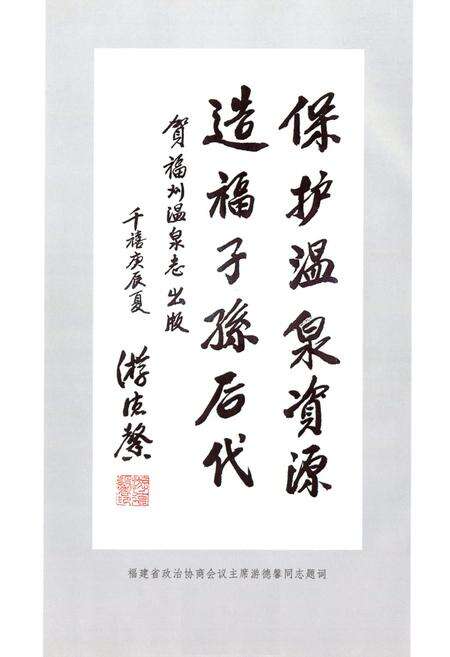 保护温泉資源
造福子孫后代
贺福州温泉志出版
千禧庚辰夏
游德馨
福建省政治协商会议主席游德馨同志题词